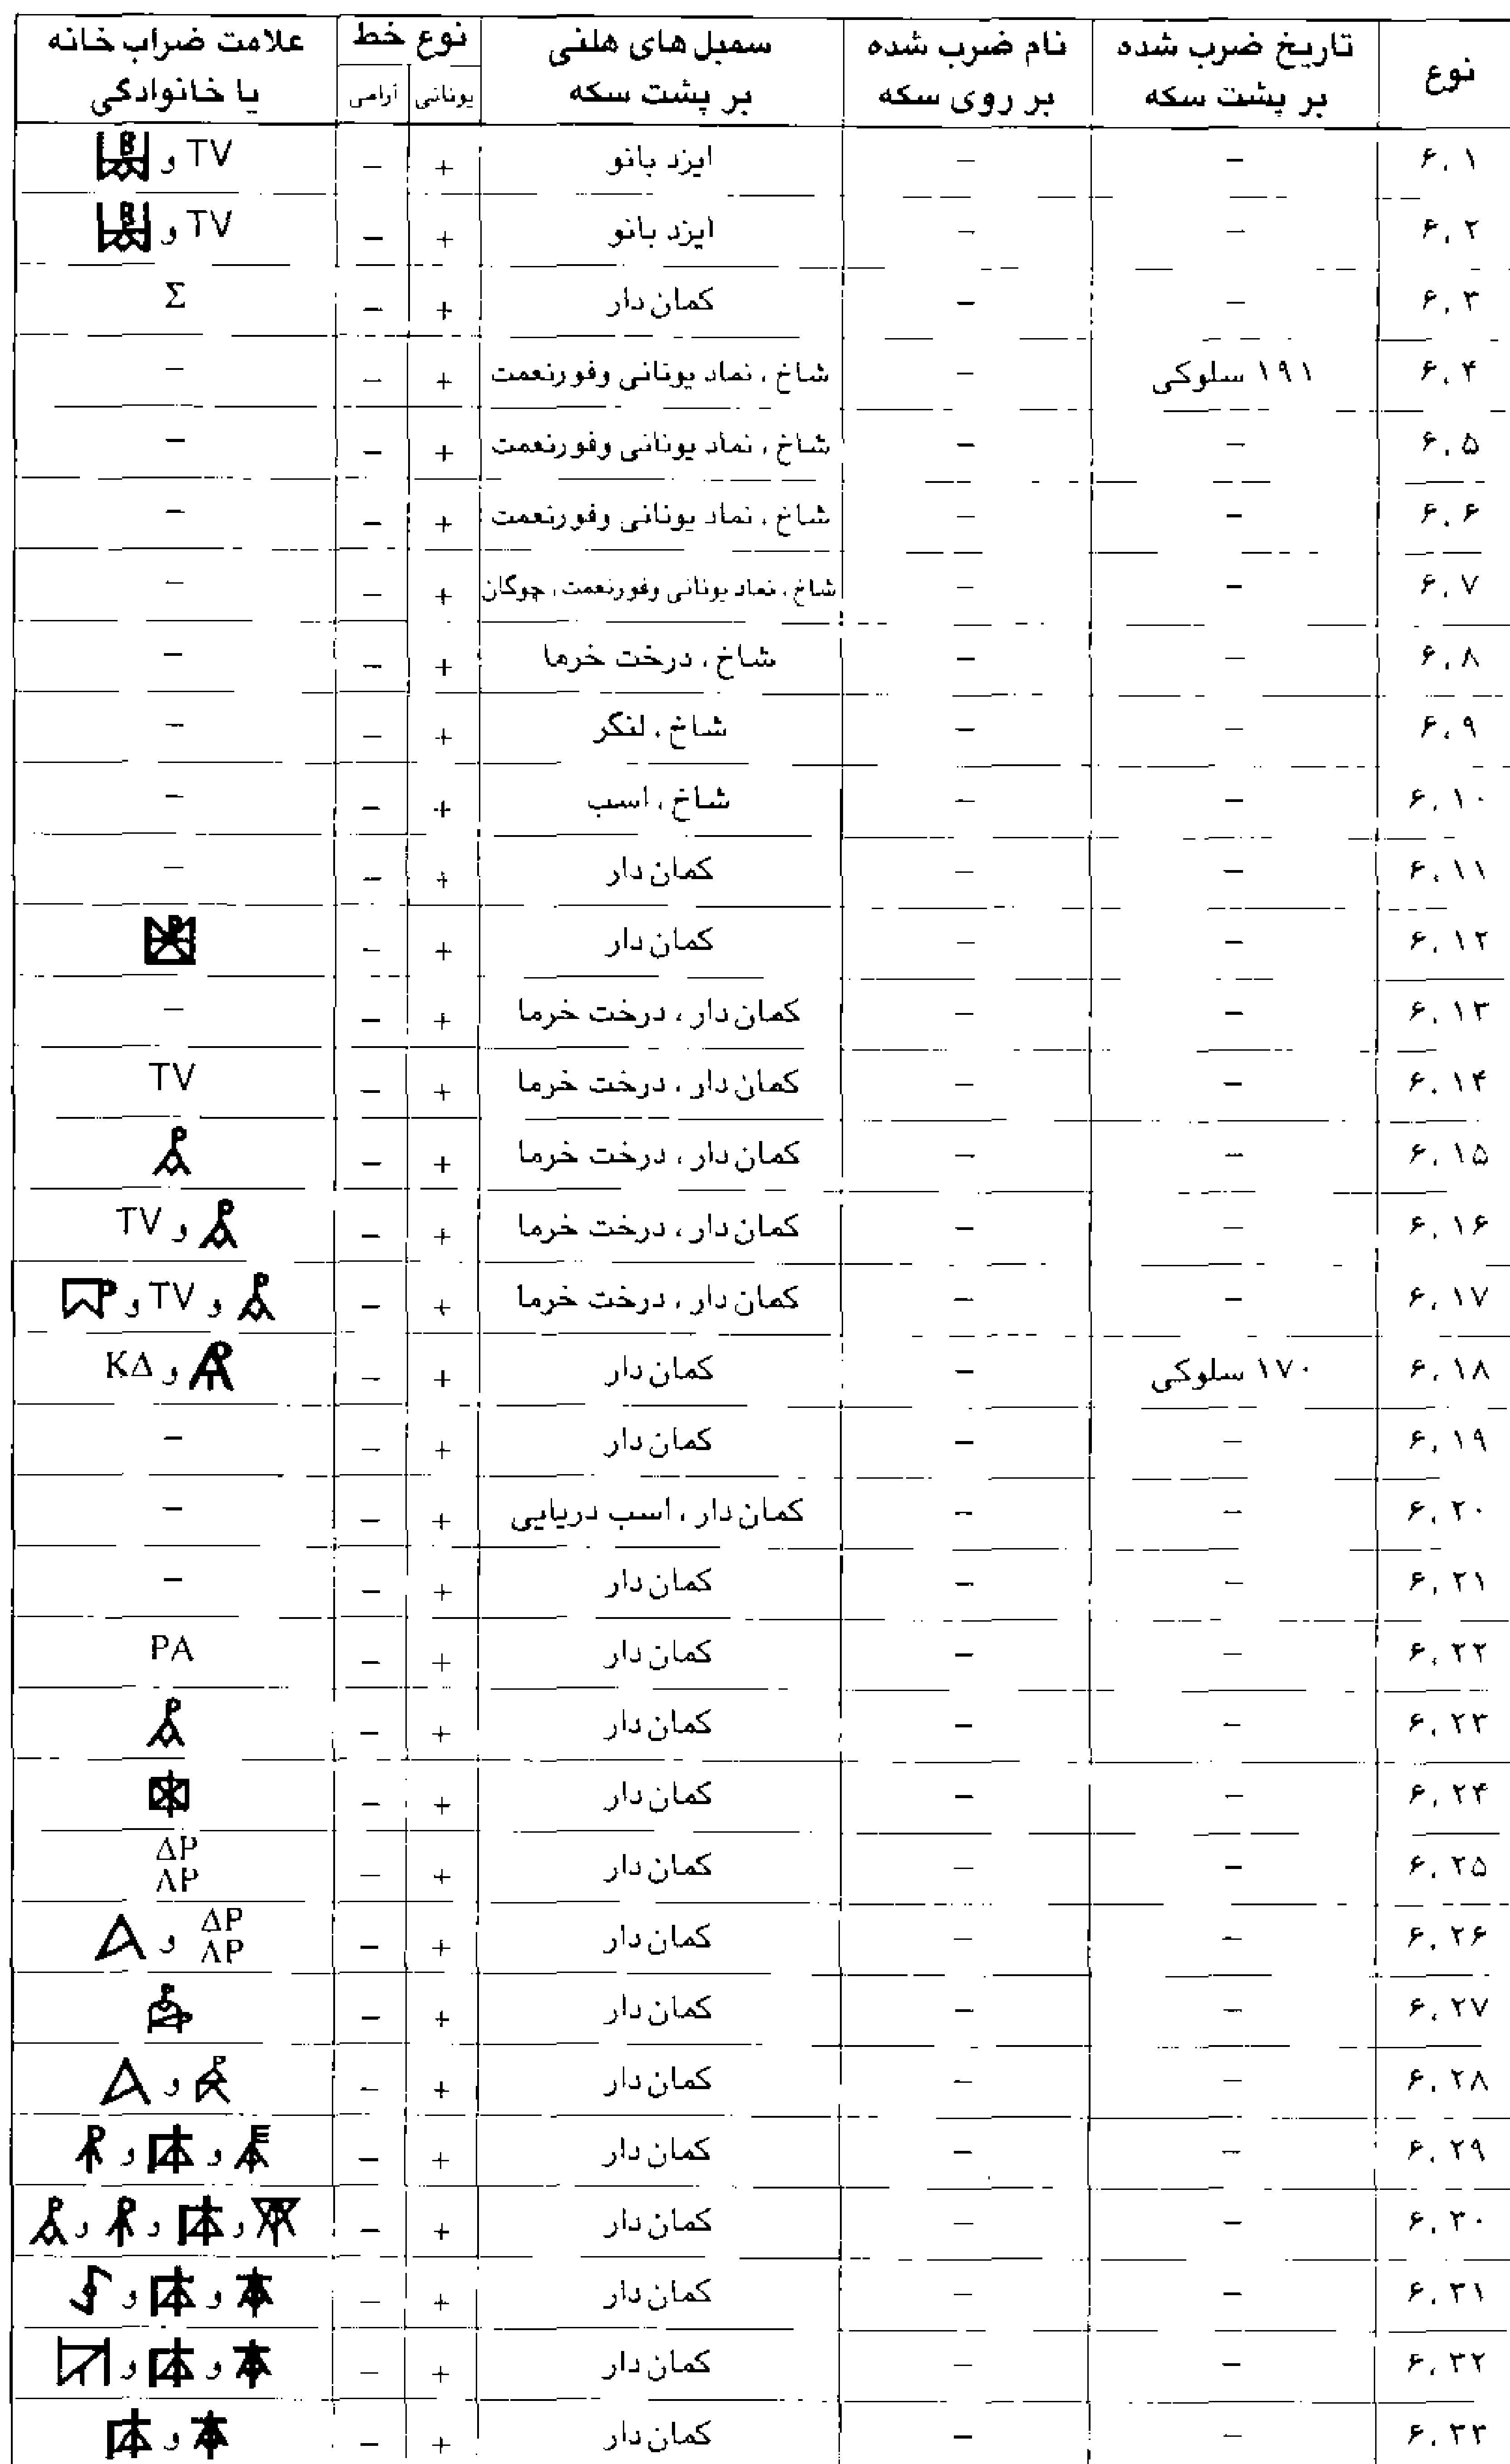 نوع | تاریخ ضرب شده بر پشت سکه | نام ضرب شده بر روی سکه | سمبل های هلنی بر پشت سکه | نوع خط یونانی | آرامی | علامت ضراب خانه یا خانوادگی
۶.۱ | – | – | ایزد بانو | + | – | TV و
۶.۲ | – | – | ایزد بانو | + | – | TV و
۶.۳ | – | – | کمان دار | + | – | Σ
۶.۴ | ۱۹۱ سلوکی | – | شاخ، نماد یونانی وفورنعمت | + | – | –
۶.۵ | – | – | شاخ، نماد یونانی وفورنعمت | + | – | –
۶.۶ | – | – | شاخ، نماد یونانی وفورنعمت | + | – | –
۶.۷ | – | – | شاخ، نماد یونانی وفورنعمت، چوگان | + | – | –
۶.۸ | – | – | شاخ، درخت خرما | + | – | –
۶.۹ | – | – | شاخ، لنگر | + | – | –
۶.۱۰ | – | – | شاخ، اسب | + | – | –
۶.۱۱ | – | – | کمان دار | + | – | –
۶.۱۲ | – | – | کمان دار | + | –
۶.۱۳ | – | – | کمان دار، درخت خرما | + | – | –
۶.۱۴ | – | – | کمان دار، درخت خرما | + | – | TV
۶.۱۵ | – | – | کمان دار، درخت خرما | + | –
۶.۱۶ | – | – | کمان دار، درخت خرما | + | – | و TV
۶.۱۷ | – | – | کمان دار، درخت خرما | + | – | و TV و
۶.۱۸ | ۱۷۰ سلوکی | – | کمان دار | + | – | و ΚΔ
۶.۱۹ | – | – | کمان دار | + | – | –
۶.۲۰ | – | – | کمان دار، اسب دریایی | + | – | –
۶.۲۱ | – | – | کمان دار | + | – | –
۶.۲۲ | – | – | کمان دار | + | – | PA
۶.۲۳ | – | – | کمان دار | + | –
۶.۲۴ | – | – | کمان دار | + | –
۶.۲۵ | – | – | کمان دار | + | – | ΔP ΛP
۶.۲۶ | – | – | کمان دار | + | – | ΔP ΛP و
۶.۲۷ | – | – | کمان دار | + | –
۶.۲۸ | – | – | کمان دار | + | – | و
۶.۲۹ | – | – | کمان دار | + | – | و و
۶.۳۰ | – | – | کمان دار | + | – | و و و
۶.۳۱ | – | – | کمان دار | + | – | و و
۶.۳۲ | – | – | کمان دار | + | – | و و
۶.۳۳ | – | – | کمان دار | + | – | و